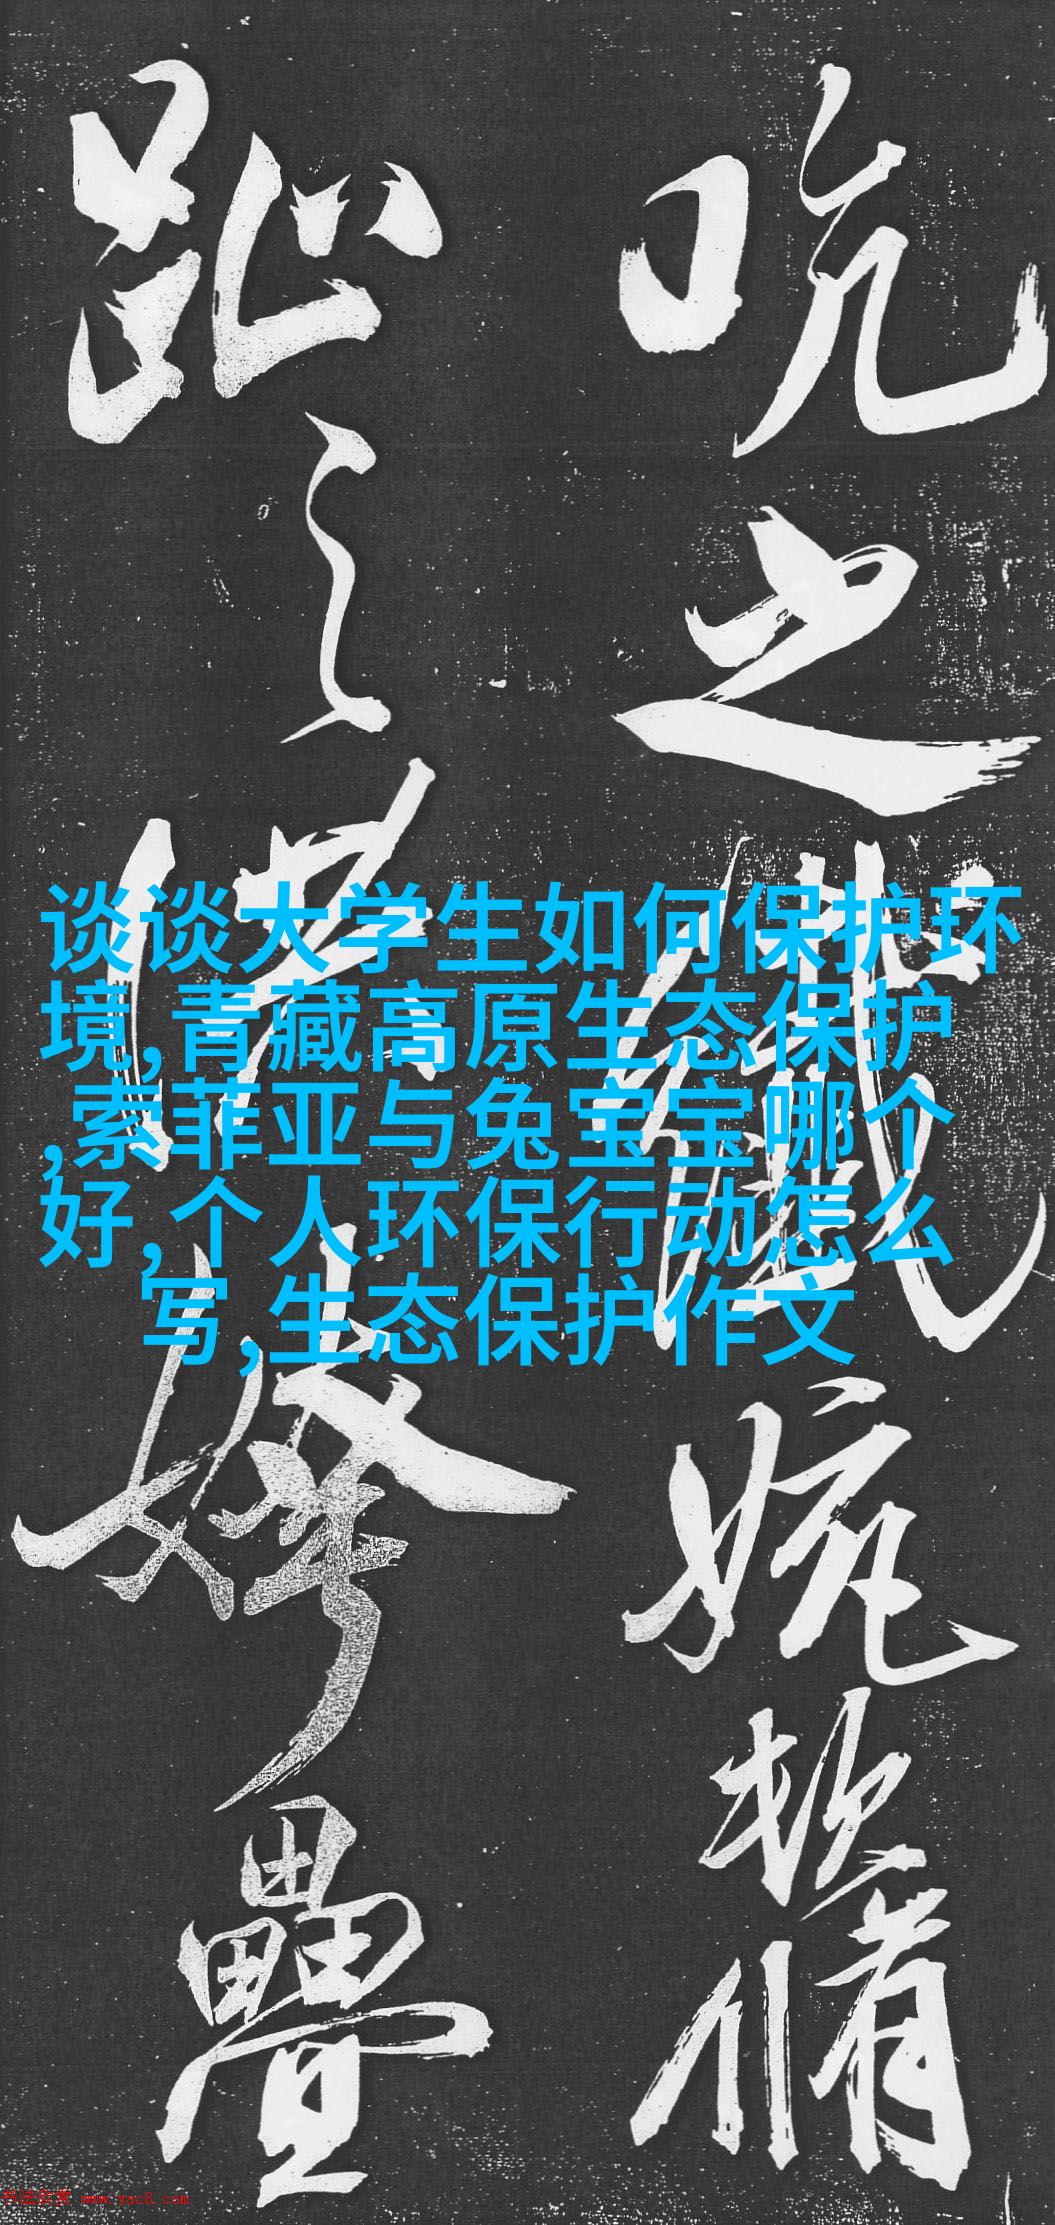 吭之纖婉頓脩
趾之洪姱疊
谈谈大学生如何保护环
境,青藏高原生态保护
,索菲亚与兔宝宝哪个
好,个人环保行动怎么
写,生态保护作文
书法欣赏 www.yac8.com